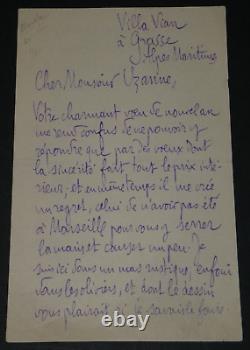 Villa Vian
à Grasse
Alpes Maritimes
Cher Monsieur Uzanne,
Votre charmant vœu de nouvel an
me rend confus de ne pouvoir y
répondre que par des vœux dont
la sincérité fait tout le prix inté-
rieur, et en même temps il me crée
un regret, celui de n'avoir pas été
à Marseille pour vous y serrer
la main et causer un peu. Je
suis ici dans un mas rustique, enfoui
sous les oliviers, et dont le dessin
vous plairait si je savais le faire.
© ebay